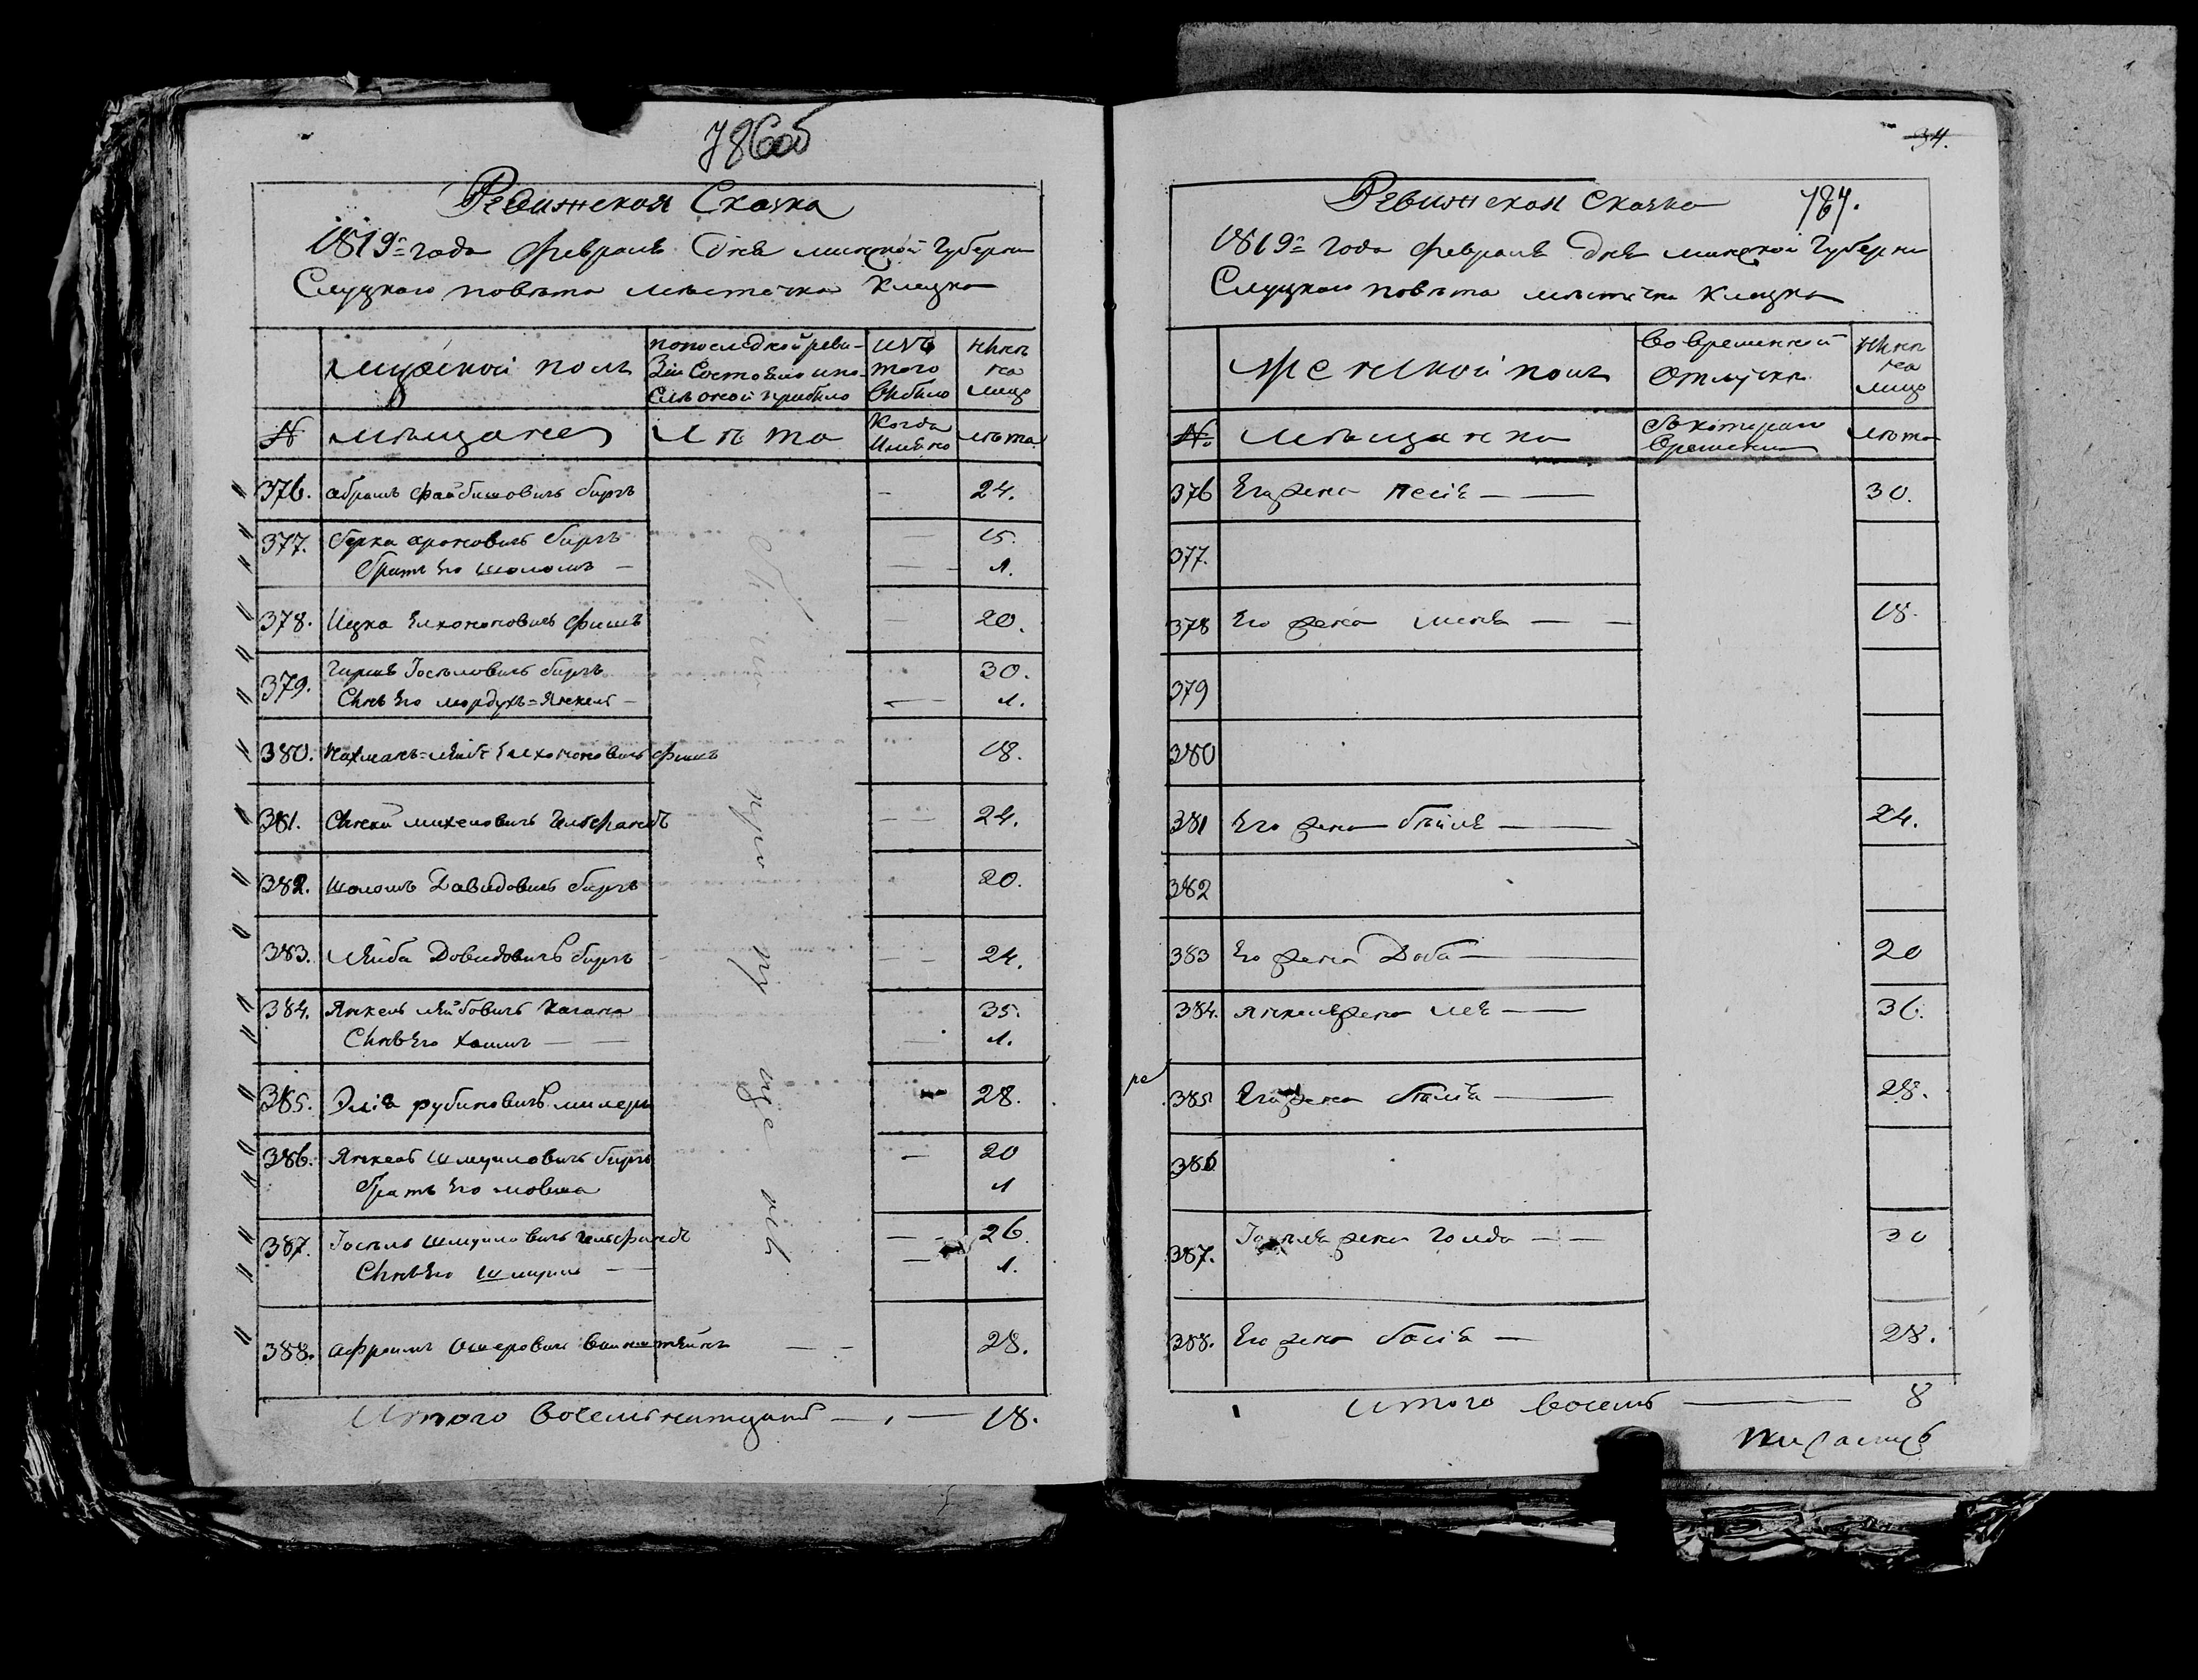 786об
Ревижская Сказка
1819го года Февраля дня минской Губерни
Слуцкаго повѣта мѣстечка Клецка
мужской полъ
попоследной реви-
зіи Состояло ипо-
слѣ оной прибыло
изъ
того
выбыло
нынѣ
на
лицо
№
мѣщане
лѣта
Когда
имянно
лѣта
376. Абрамъ Файбишовичъ биргъ — 24.
377. берка ароновичъ биргъ — 15.
братъ Его шоломъ — 1.
378. Ицка Елхоновичъ Фишъ — 20.
379. Гиршъ Іосѣловичъ биргъ 30.
Сынъ Его мордухъ=Янкель — 1.
380. Нахманъ=лейб Елхоновичъ Фишъ 18.
381. михелевичъ Гелфандъ — 24.
382. шоломъ Давидовичъ биргъ 20.
383. Лейба Довидовичъ биргъ — 24.
384. Янкель лейбовичъ Кагана 35.
Сынъ Его Хаимъ — 1.
385. Элія рубиновичъ милеръ — 28.
386. Янкель Шмуиловичъ биргъ — 20
братъ Его мовша 1
387. Іосѣль шмуиловичъ Гельфандъ — 26.
Сынъ Его Шмуила — 1.
388. Афроимъ Ошеровичъ Ваинштейнъ — 28.
Итого восемьнатцать — 18.
34.
Ревижская Сказка 787.
1819го года Февраля дня минской Губерни
Слуцкаго повѣта мѣстечка Клецка
Женской полъ
во временной
отлучке
нынѣ
на
лицо
№
мѣщанки
Съ котораго
времени
лѣта
376 Его жена песія — 30.
377.
378 Его жена — 18.
379
380
381 Его жена бѣйля — 24.
382
383 Его жена Доба — 20
384. Янкеля жена лея — 36.
385 Его жена — 28.
386
387. Іосѣля жена Голда — 30
388. Его жена басія — 28.
Итого восемь — 8